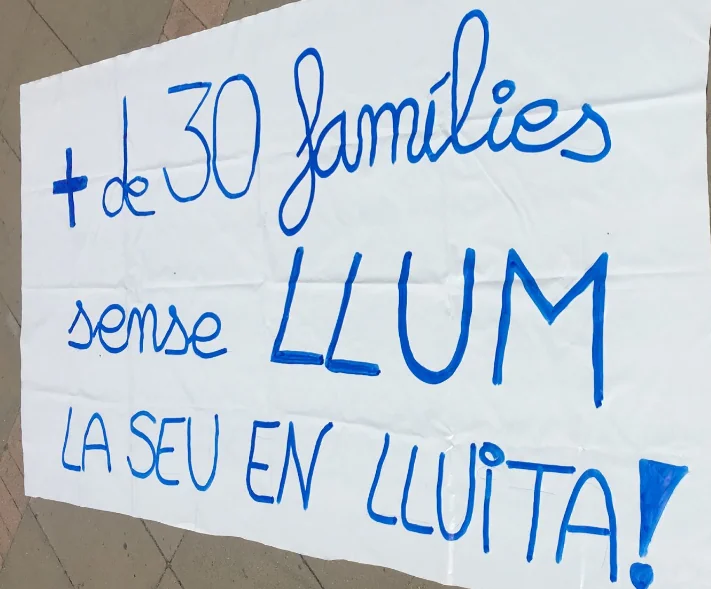 + de 30 famílies
sense LLUM
LA SEU EN LLUiTA!